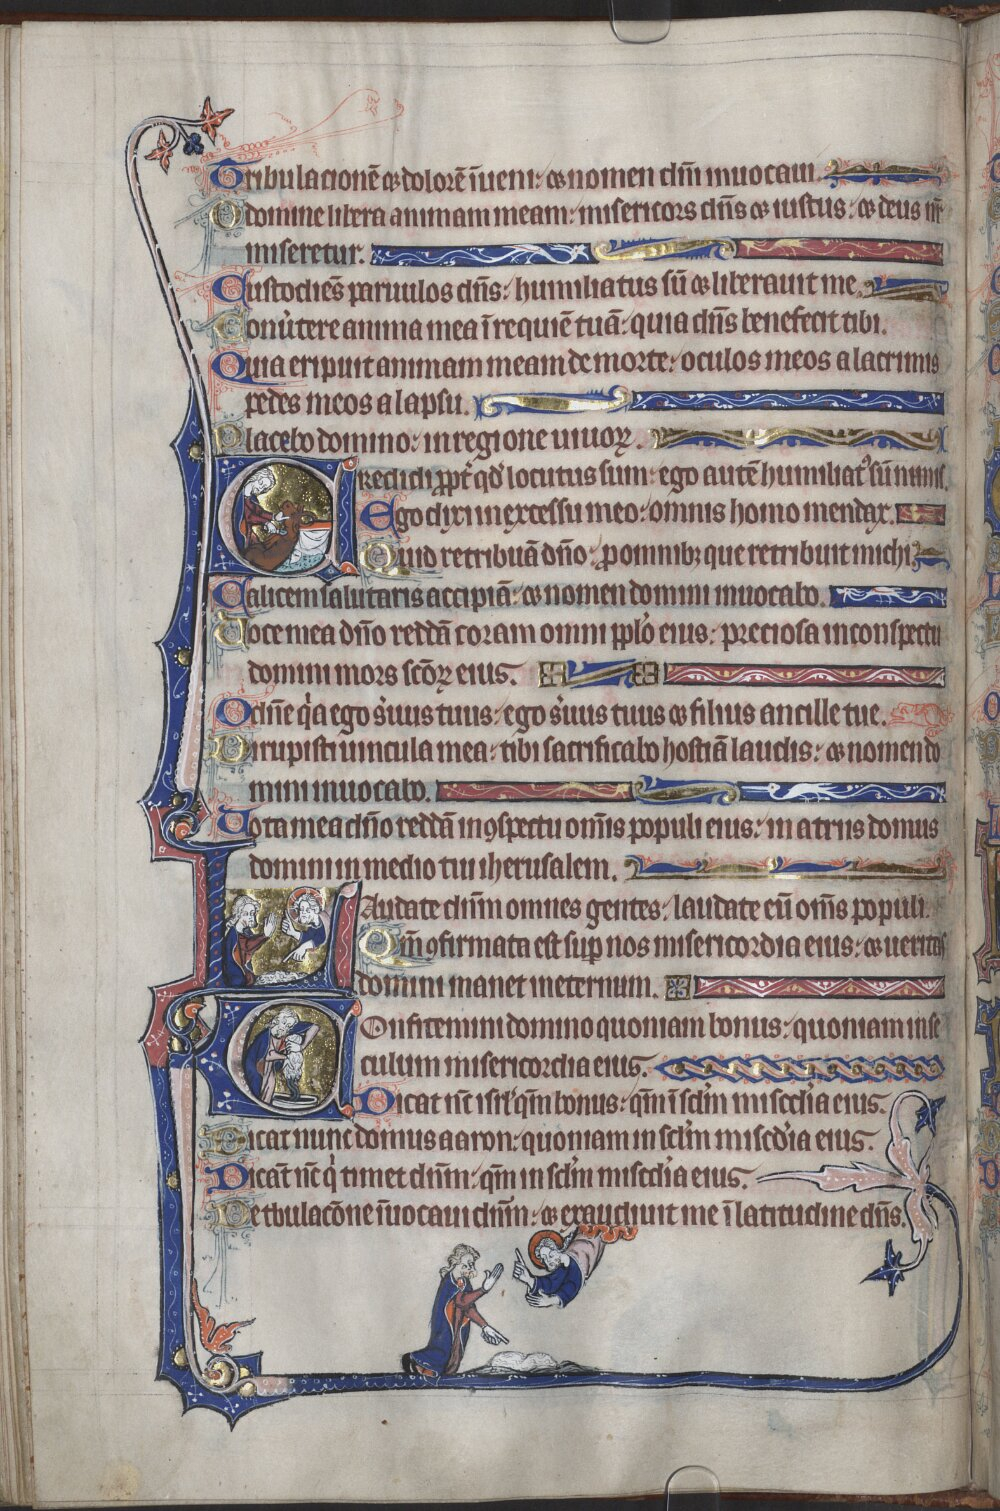 Tribulacionē ⁊ dolorē īueni: ⁊ nomen dn̄i inuocaui.
O domine libera animam meam: misericors dn̄s ⁊ iustus: ⁊ deus nr̄
miseretur.
Custodiēs paruulos dn̄s: humiliatus sū ⁊ liberauit me.
Conūtere anima mea ī requiē tuā: quia dn̄s benefecit tibi.
Quia eripuit animam meam de morte: oculos meos a lacrimis
pedes meos a lapsu.
Placebo domino: in regione uiuoꝝ.
Credidi ꝓpt̄ qd̄ locutus sum: ego autē humiliatꝰ sū nimis.
Ego dixi in excessu meo: omnis homo mendax.
Quid retribuā dn̄o: ꝓ omnibꝫ que retribuit michi.
Calicem salutaris accipiā: ⁊ nomen domini inuocabo.
Vota mea dn̄o reddā coram omni pplo eius: preciosa in conspectu
domini mors sc̄oꝝ eius.
O dn̄e qͥa ego s̄uus tuus: ego s̄uus tuus ⁊ filius ancille tue.
Dirupisti uincula mea: tibi sacrificabo hostiā laudis: ⁊ nomen do
mini inuocabo.
Vota mea dn̄o reddā in ꝯspectu om̄is populi eius: in atriis domus
domini in medio tui iherusalem.
Laudate dn̄m omnes gentes: laudate eū om̄s populi.
Qm̄ ꝯfirmata est sup nos misericordia eius: ⁊ ueritas
domini manet in eternum.
Confitemini domino quoniam bonus: quoniam in se
culum misericordia eius.
Dicat nc̄ isrl' qm̄ bonus: qm̄ ī sclm̄ miscdia eius.
Dicat nunc domus aaron: quoniam in sclm̄ miscdia eius.
Dicāt nc̄ qͥ timet dn̄m: qm̄ in sclm̄ miscdia eius.
De tbulacōne īuocaui dn̄m: ⁊ exaudiuit me ī latitudine dn̄s.